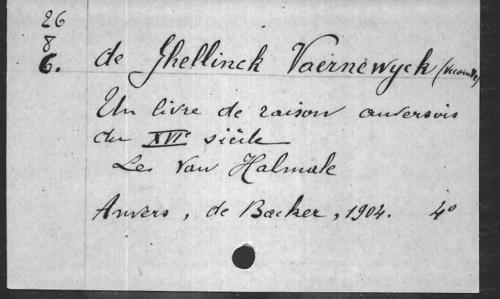 26
8
6. de Ghellinck Vaernewyck (Vicomte)
Un livre de raison anversois
du XVIe siècle
Les Van Halmale
Anvers, de Backer, 1904. 4o